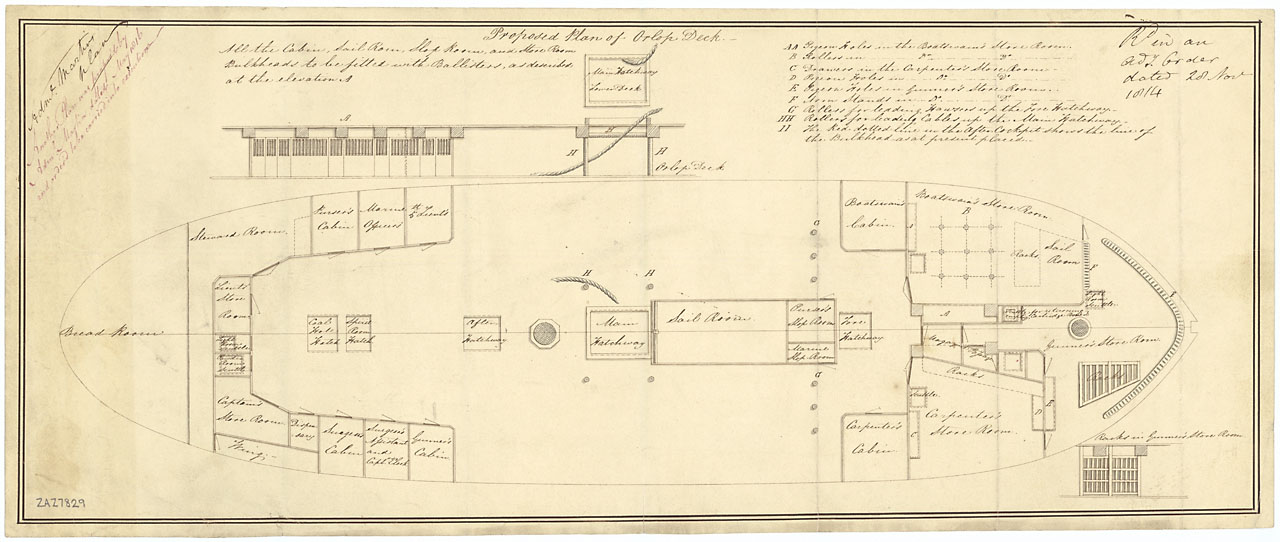 Proposed Plan of Orlop Deck
All the Cabin, Sail Room, Slop Room, and Store Room
Bulkheads to be fitted with Ballisters, as described
at the elevation A
AA Pigeon Holes in the Boatswain's Store Room.
B Rollers in Do. Do.
C Drawers in the Carpenter's Store Room
D Pigeon Holes in Do. Do.
E Pigeon Holes in Gunner's Store Room
F Stands in Do. Do.
G Rollers for leading Hawsers up the Fore Hatchway
HH Rollers for leading Cables up the Main Hatchway.
II The Red dotted line in the After Cockpit shews the line of
the Bulkhead as at present placed
Recd in an
Ady Order
dated 28 Nov
1814
Adml Martin's
Plan
Main Hatchway
Lower Deck
A
H
H
Orlop Deck
Steward Room
Purser's
Cabin
Marine
Officers
Boatswain's
Cabin
Boatswain's Store Room
B
Racks
Sail
Room
F
Lieuts
Store
Room
Bread Room
Coal
Hole
Hatch
Spirit
Room
Hatch
After
Hatchway
H
H
Main
Hatchway
Sail Room
Purser's
Slop Room
Marine
Slop Room
Fore
Hatchway
G
G
A
Racks
Gunner's Store Room
Racks
E
D
C
Scuttle
Carpenter's
Store Room
Carpenter's
Cabin
Captain's
Store Room
Wing
Dispensary
Surgeon's
Cabin
Surgeon's
Assistant
and
Capts Clerk
Gunner's
Cabin
Racks in Gunner's Store Room
ZAZ7829